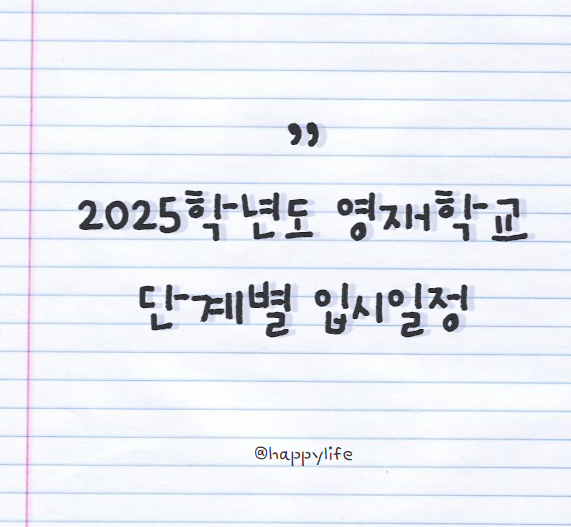 ”
2025학년도 영재학교
단계별 입시일정
@happylife